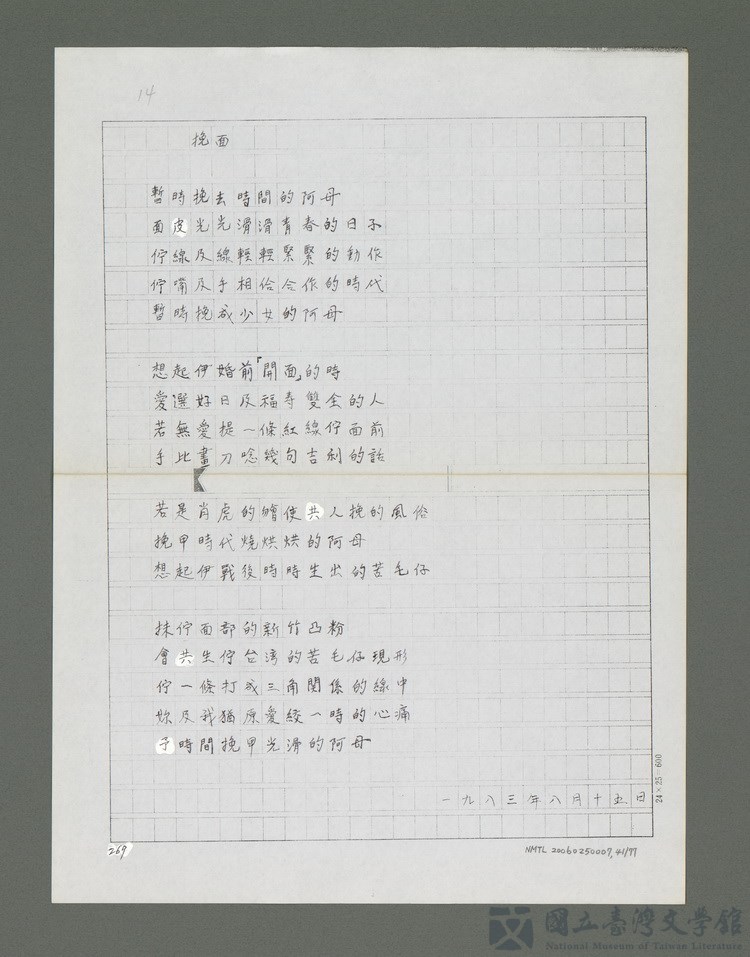 14
挽面
暫時挽去時間的阿母
面皮光光滑滑青春的日子
佇線及線輕輕緊緊的動作
佇嘴及手相佮合作的時代
暫時挽成少女的阿母
想起伊婚前「開面」的時
愛選好日及福壽雙全的人
若無愛提一條紅線佇面前
手比畫刀唸幾句吉利的話
若是肖虎的繪使共人挽的風俗
挽甲時代燒烘烘的阿母
想起伊戰後時時生出的苦毛仔
抹佇面部的新竹凸粉
會共生佇台湾的苦毛仔現形
佇一條打成三角関係的線中
妳及我猶原愛絞一時的心痛
予時間挽甲光滑的阿母
一九八三年八月十五日
24×25=600
269
NMTL 20060250007,41/77
國立臺灣文學館
National Museum of Taiwan Literature